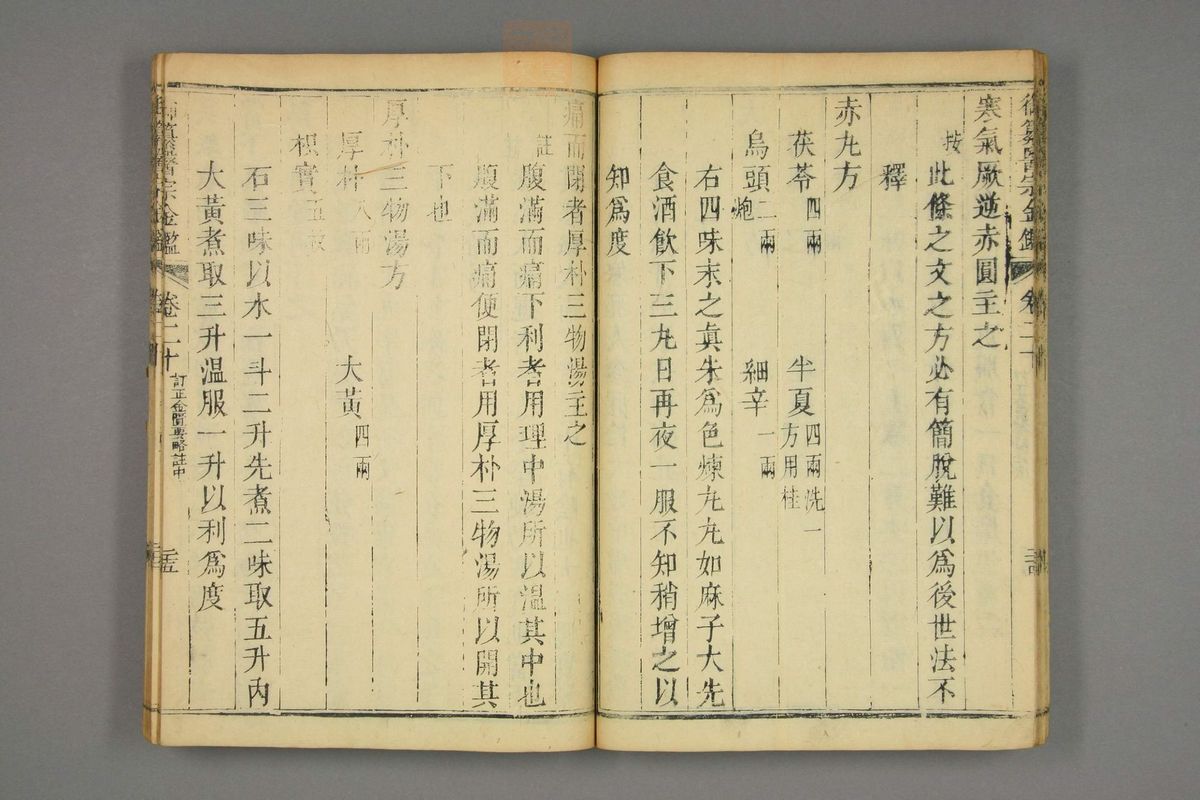 御纂醫宗金鑑 卷二十
寒氣厥逆赤圓主之
按 此條之文之方必有簡脫難以爲後世法不
釋
赤丸方
茯苓 四兩 半夏 四兩洗一方用桂
烏頭 二兩炮 細辛 一兩
右四味末之眞朱爲色煉丸丸如麻子大先
食酒飮下三丸日再夜一服不知稍增之以
知爲度
痛而閉者厚朴三物湯主之
註 腹滿而痛下利者用理中湯所以溫其中也
腹滿而痛便閉者用厚朴三物湯所以開其
下也
厚朴三物湯方
厚朴 八兩 大黃 四兩
枳實 五枚
右三味以水一斗二升先煮二味取五升內
大黃煮取三升溫服一升以利爲度
御纂醫宗金鑑 卷二十 訂正金匱要略註中 二五